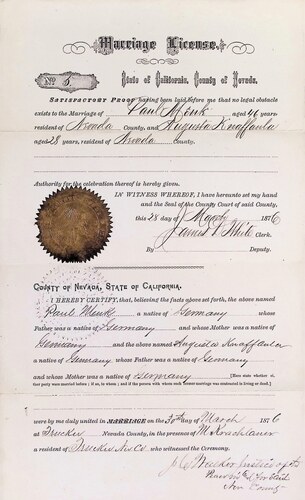 Marriage License.
No. 5
State of California, County of Nevada.
SATISFACTORY PROOF having been laid before me that no legal obstacle
exists to the Marriage of Paul Mink aged 46 years
resident of Nevada County, and Augusta Knaffanla
aged 28 years, resident of Nevada County.
Authority for the celebration thereof is hereby given.
IN WITNESS WHEREOF, I have hereunto set my hand
and the Seal of the County Court of said County,
this 28 day of March 1876
James D White Clerk.
By Deputy.
COUNTY OF NEVADA, STATE OF CALIFORNIA.
I HEREBY CERTIFY, that, believing the facts above set forth, the above named
Paul Mink a native of Germany whose
Father was a native of Germany and whose Mother was a native of
Germany and the above named Augusta Knaffanla
a native of Germany whose Father was a native of Germany
and whose Mother was a native of Germany
were by me duly united in MARRIAGE on the 30th day of March 1876
at Truckee Nevada County, in the presence of M
a resident of Truckee Nev Co who witnessed the Ceremony.
Justice of the
Nev County